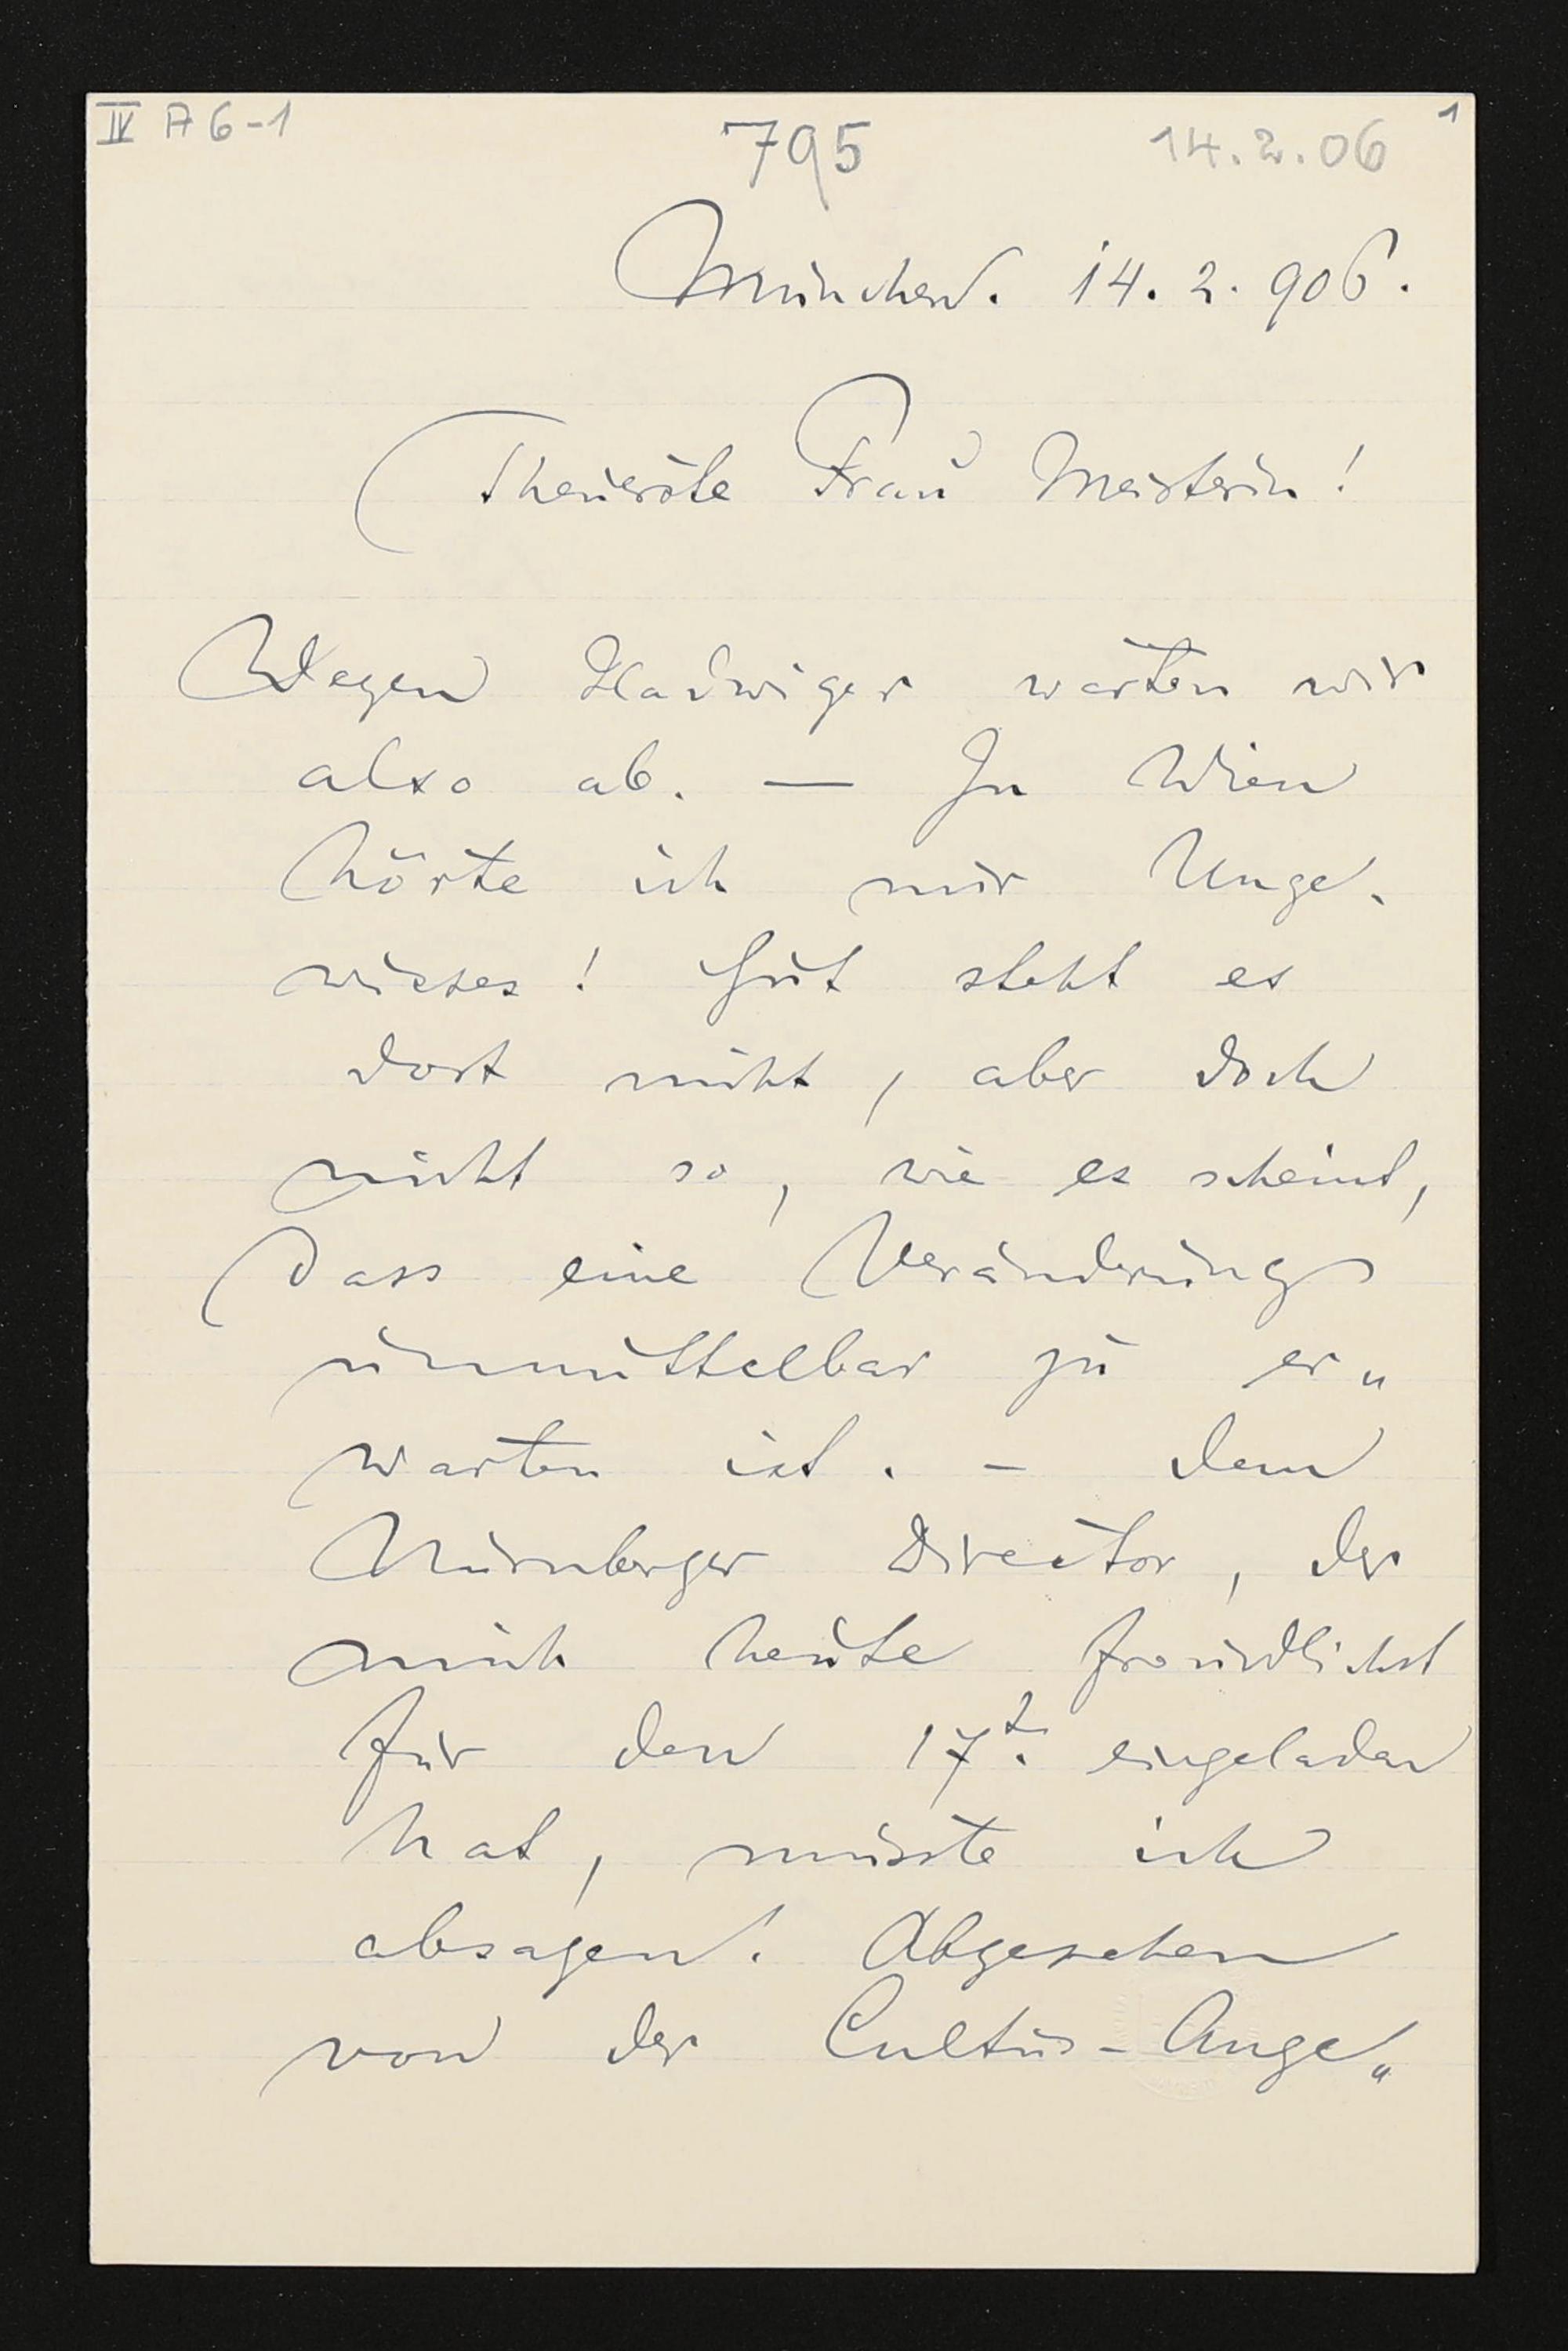 IV A 6-1
795
14.2.06
1
München. 14. 2. 906.
Theuerste Frau Meisterin!
Wegen Hadwiger warten wir
also ab. — In Wien
hörte ich nur Unge-
wisses! Gut steht es
dort nicht, aber doch
nicht so, wie es scheint,
dass eine Veränderung
unmittelbar zu er„
warten ist. – Dem
Nürnberger Director, der
mich heute freundlichst
für den 17t. eingeladen
hat, musste ich
absagen. Abgesehen
von der Cultus-Ange„